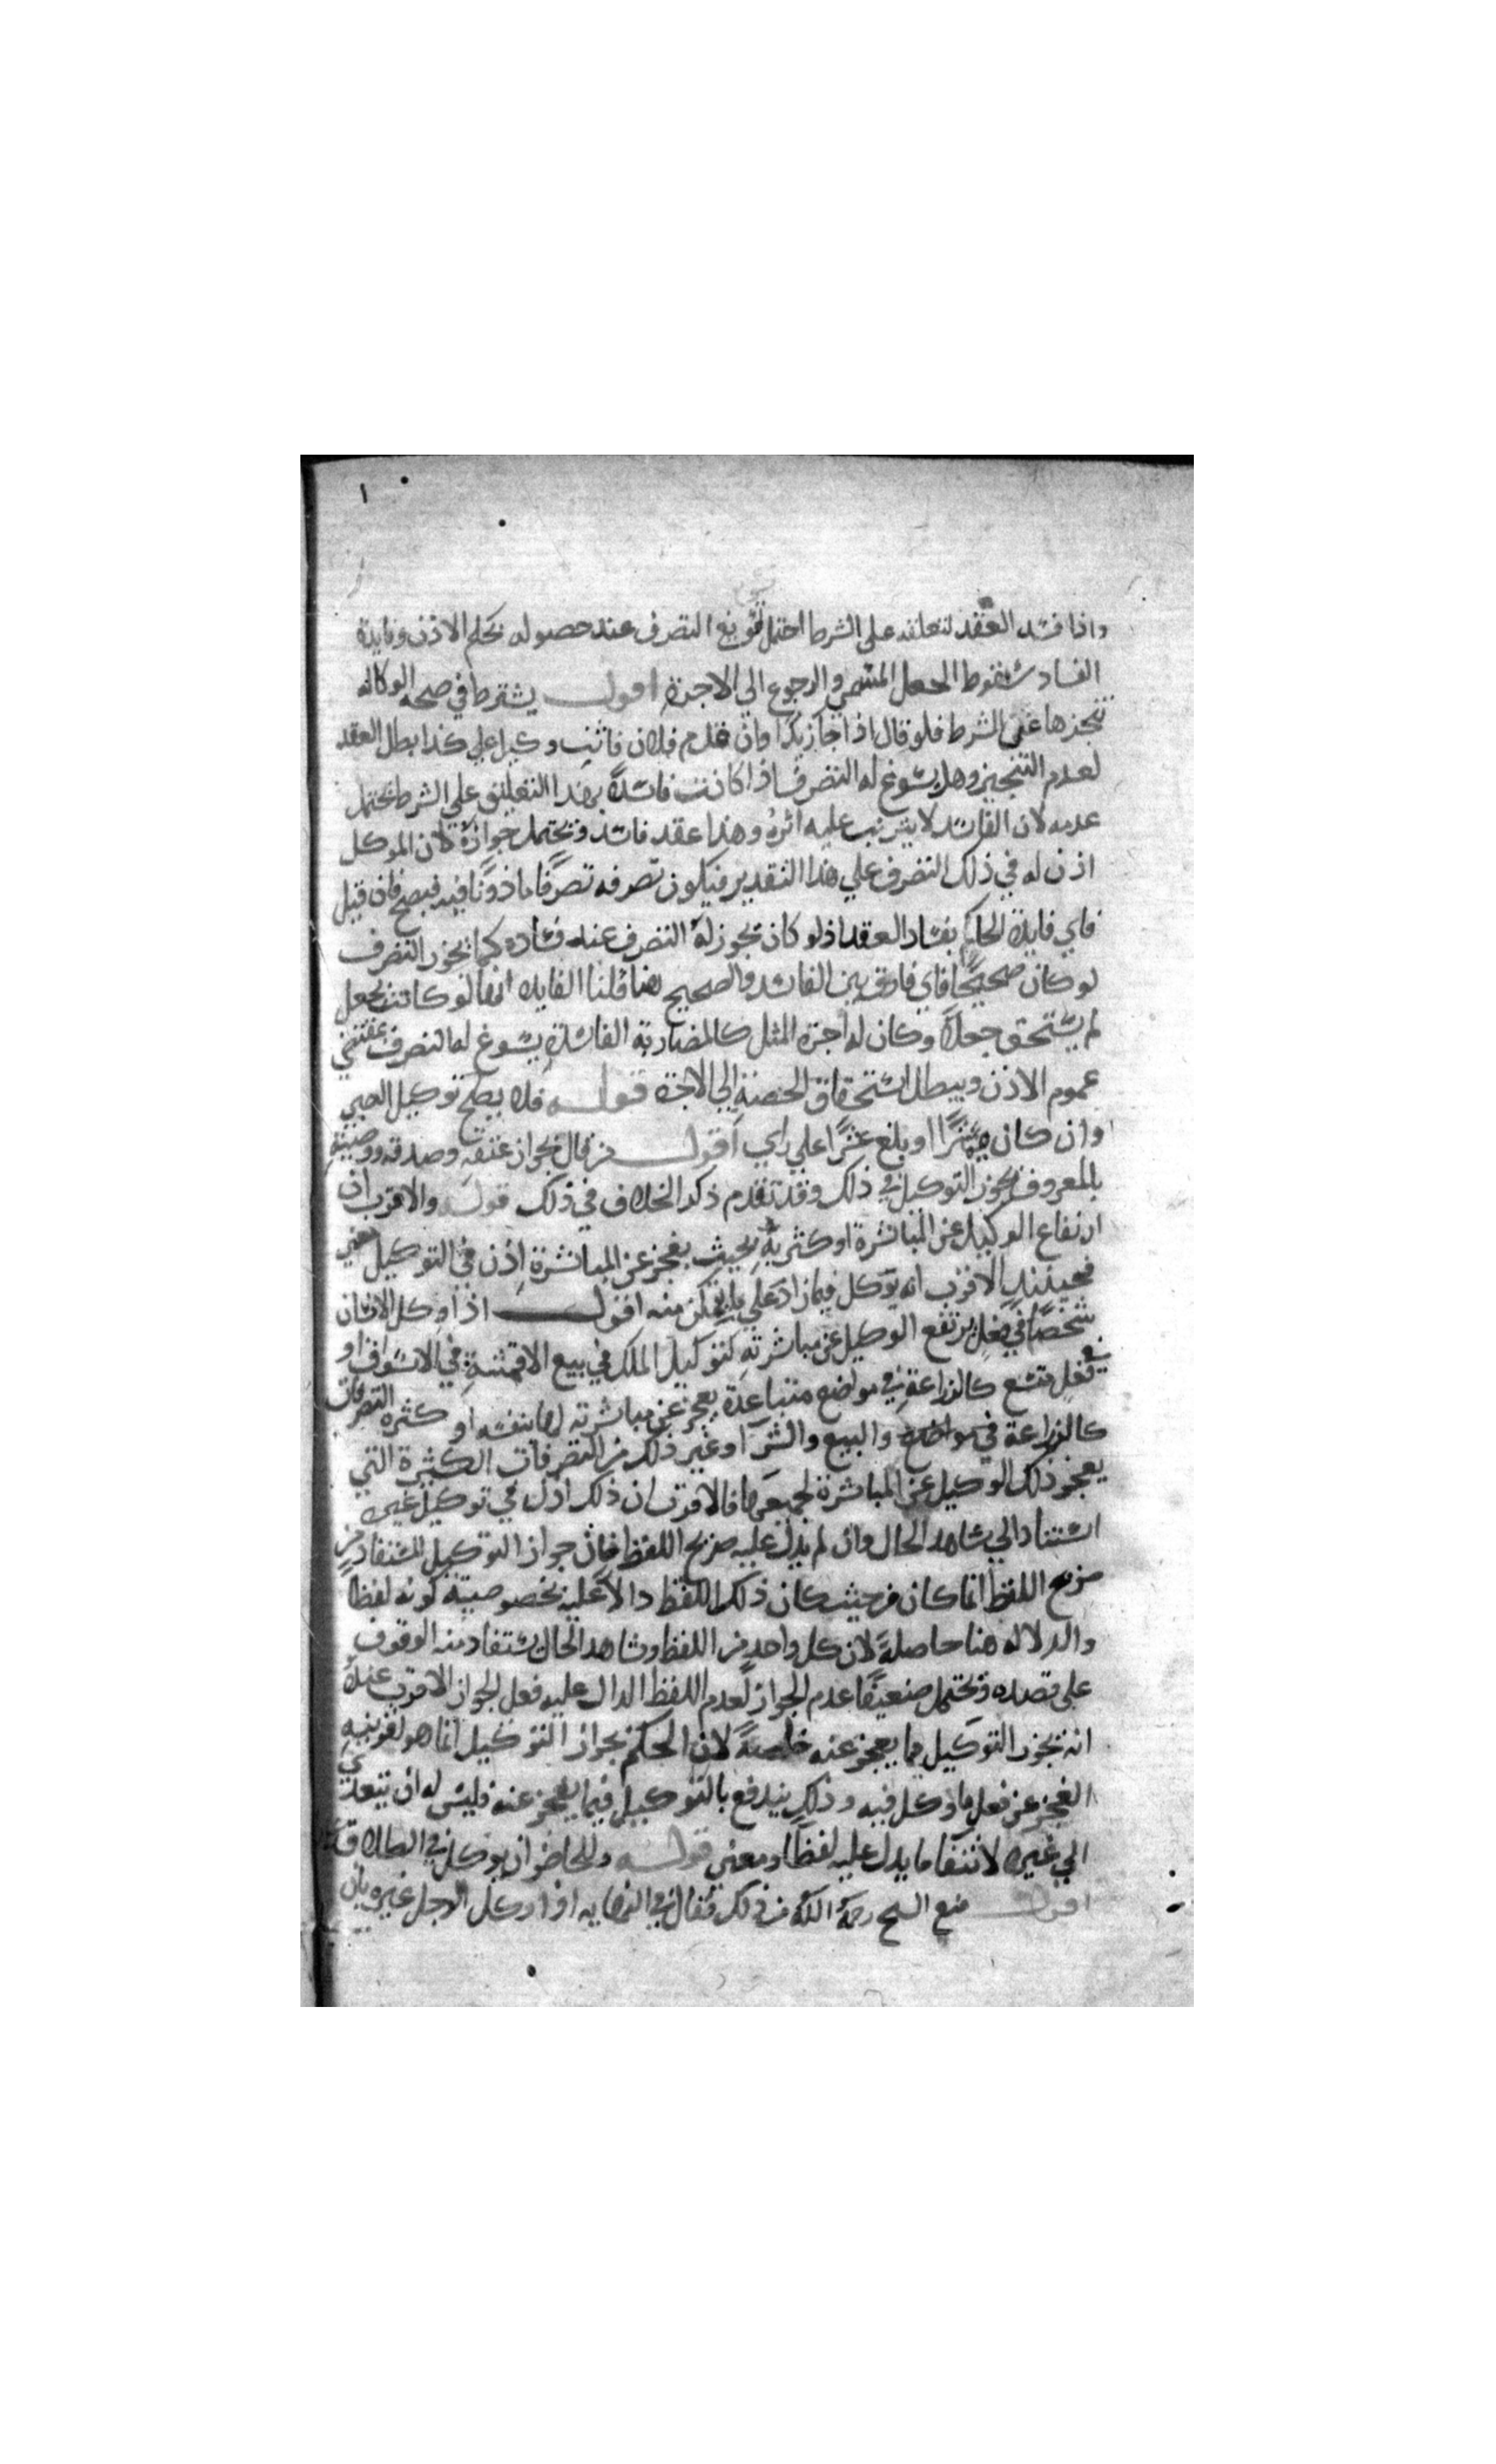 ١
واذا فسد العقد لتعلقه على الشرط احتمل تسويغ التصرف عند حصوله بحكم الاذن وفايدة
الفساد سقوط الجعل المسمي والرجوع الي الاجرة اقول يشترط في صحه الوكاله
تنجزها علي الشرط فلو قال اذا جا زيد او ان قدم فلان فانت وكيلي علي كذا بطل العقد
لعدم التنجيز وهل يسوغ له التصرف اذا كانت فاسدة بهذا التعليق علي الشرط يحتمل
عدمه لان الفاسد لا يترتب عليه اثره وهذا عقد فاسد ويحتمل جوازه لان الموكل
اذن له في ذلك التصرف علي هذا التقدير فيكون تصرفه تصرفا ماذونا فيه فيصح فان قيل
فاي فايدة للحكم بفساد العقد اذ لو كان يجوز له التصرف عند فساده كما يجوز التصرف
لو كان صحيحا فاي فارق بين الفاسد والصحيح هنا قلنا الفايده انها لو كانت بجعل
لم يستحق جعلا وكان له اجرة المثل كالمضاربة الفاسدة يسوغ له التصرف بمقتضي
عموم الاذن ويبطل استحقاق الحصة الي الاجرة قوله فلا يصح توكيل الصبي
وان كان مميزا او بلغ عشرا علي راي اقول من قال بجواز عتقه وصدقه ووصيته
بالمعروف يجوز التوكيل في ذلك وقد تقدم ذكر الخلاف في ذلك قوله والاقرب ان
ارتفاع الوكيل عن المباشرة او كثرته بحيث يعجز عن المباشرة اذن في التوكيل معني
فحينئذ الاقرب انه يوكل فيما زاد علي ما يتمكن منه اقول اذا وكل الانسان
شخصا في فعل يرتفع الوكيل عن مباشرته كتوكيل الملك في بيع الاقمشة في الاسواق او
في فعل متسع كالزراعة في مواضع متباعدة يعجز عن مباشرته لها بنفسه او كثرة التصرفات
كالزراعة في مواضع والبيع والشرا وغير ذلك من التصرفات الكثيرة التي
يعجز ذلك الوكيل عن المباشرة لجميعها فالاقرب ان ذلك اذن في توكيل غيره
استنادا الي شاهد الحال وان لم يدل عليه صريح اللفظ فان جواز التوكيل المستفاد من
صريح اللفظ انما كان من حيث كان ذلك اللفظ دالا عليه بخصوصيته كونه لفظا
والدلاله هنا حاصلة لان كل واحد من اللفظ وشاهد الحال يستفاد منه الوقوف
علي قصده ويحتمل ضعيفا عدم الجواز لعدم اللفظ الدال عليه فعل الجواز الاقرب عندي
انه يجوز التوكيل فيما يعجز عنه خاصة لان الحكم بجواز التوكيل انما هو لقرينه
العجز عن فعل ما وكل فيه وذلك يندفع بالتوكيل فيما يعجز عنه فليس له ان يتعدي
الي غيره لانتفا ما يدل عليه لفظا ومعني قوله وللحاضر ان يوكل في الطلاق
اقول منع الشيخ رحمه الله من ذلك فقال في النهايه اذا وكل الرجل غيره بان